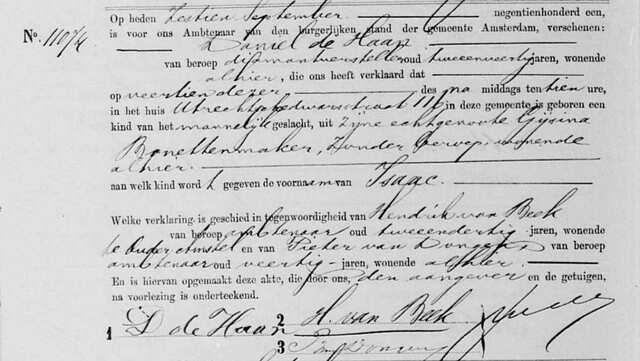 Nº. 11074
Op heden zestien September negentienhonderd een,
is voor ons Ambtenaar van den burgerlijken stand der gemeente Amsterdam, verschenen:
Daniel de Haan
van beroep diamantversteller oud tweeenveertig jaren, wonende
alhier, die ons heeft verklaard dat
op veertien dezer des na middags te tien ure,
in het huis Utrechtschedwarsstraat 119 in deze gemeente is geboren een
kind van het mannelijk geslacht, uit zijne echtgenoote Gijsina
Bonettenmaker, zonder beroep, wonende
alhier.
aan welk kind word t gegeven de voornaam van Isaac.
Welke verklaring is geschied in tegenwoordigheid van Hendrik van Beek
van beroep ambtenaar oud tweeendertig jaren, wonende
te Ouder Amstel en van Pieter van Dongen van beroep
ambtenaar oud veertig jaren, wonende alhier.
En is hiervan opgemaakt deze akte, die door ons, den aangever en de getuigen,
na voorlezing is onderteekend.
1 D de Haan 2 H. van Beek
3